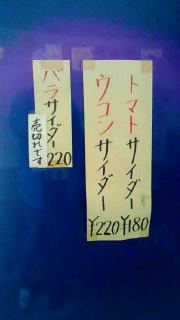 トマトサイダー ¥180
ウコンサイダー ¥220
バラサイダー 220
売切れです